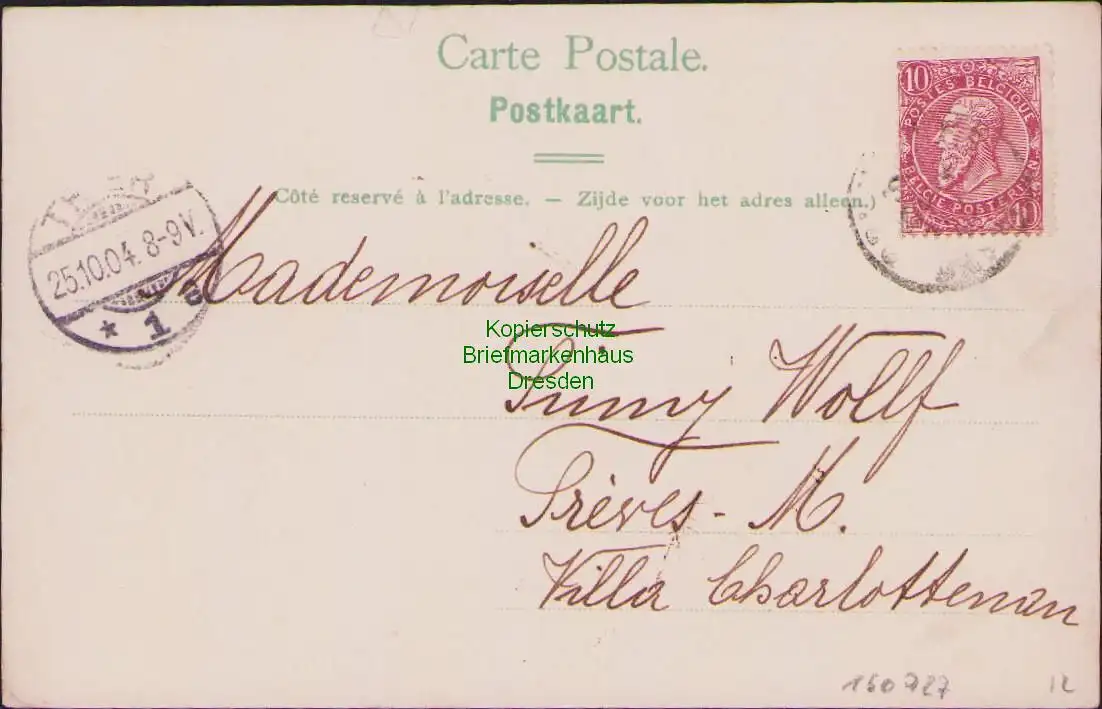 Carte Postale.
Postkaart.
Côté reservé à l'adresse. — Zijde voor het adres alleen.)
10 10
POSTES BELGIQUE
BELGIE POSTERIJEN
TRIER
25.10.04. 8-9 V.
* 1
Mademoiselle
Kopierschutz
Briefmarkenhaus
Dresden
Wollf
Trèves - M.
Villa Charlottenau
160727 12